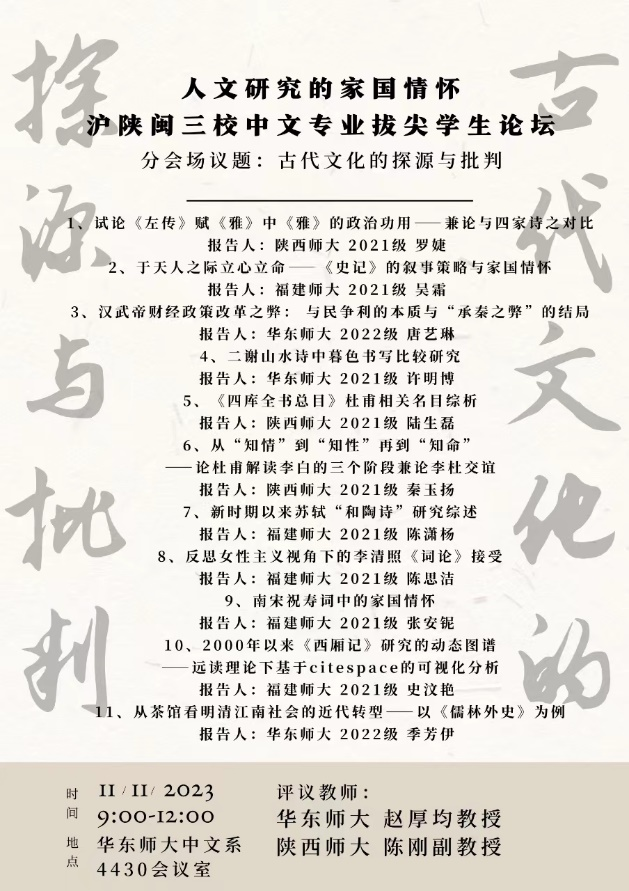 人文研究的家国情怀
沪陕闽三校中文专业拔尖学生论坛
分会场议题：古代文化的探源与批判
古代文化的
探源与批判
1、试论《左传》赋《雅》中《雅》的政治功用——兼论与四家诗之对比
报告人：陕西师大 2021级 罗婕
2、于天人之际立心立命——《史记》的叙事策略与家国情怀
报告人：福建师大 2021级 吴霜
3、汉武帝财经政策改革之弊：与民争利的本质与“承秦之弊”的结局
报告人：华东师大 2022级 唐艺琳
4、二谢山水诗中暮色书写比较研究
报告人：华东师大 2021级 许明博
5、《四库全书总目》杜甫相关名目综析
报告人：陕西师大 2021级 陆生磊
6、从“知情”到“知性”再到“知命”
——论杜甫解读李白的三个阶段兼论李杜交谊
报告人：陕西师大 2021级 秦玉扬
7、新时期以来苏轼“和陶诗”研究综述
报告人：福建师大 2021级 陈潇杨
8、反思女性主义视角下的李清照《词论》接受
报告人：福建师大 2021级 陈思洁
9、南宋祝寿词中的家国情怀
报告人：福建师大 2021级 张安铌
10、2000年以来《西厢记》研究的动态图谱
——远读理论下基于citespace的可视化分析
报告人：福建师大 2021级 史汶艳
11、从茶馆看明清江南社会的近代转型——以《儒林外史》为例
报告人：华东师大 2022级 季芳伊
时间
11/11/2023
9:00-12:00
地点
华东师大中文系
4430会议室
评议教师：
华东师大 赵厚均教授
陕西师大 陈刚副教授